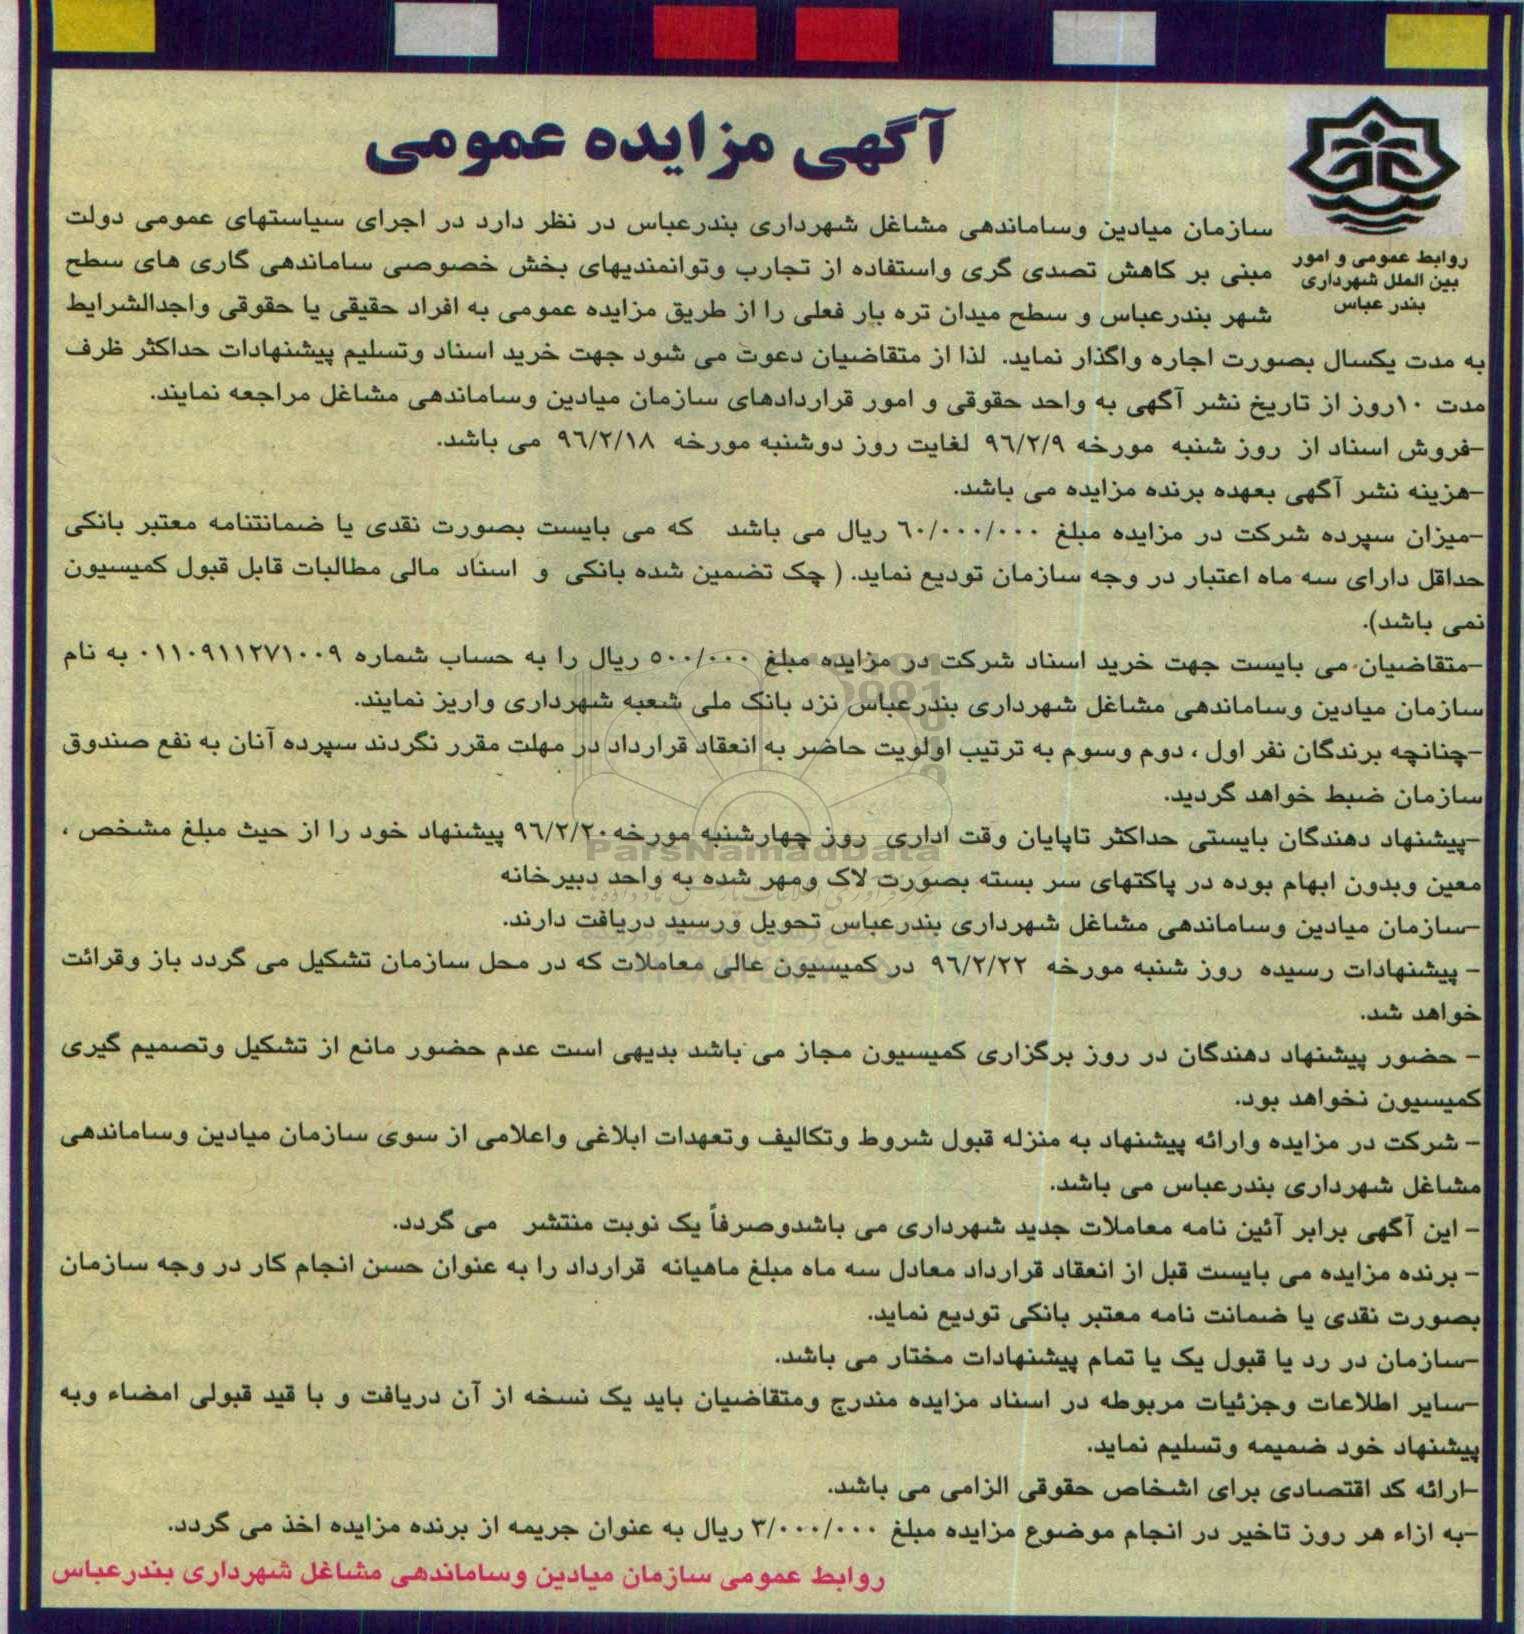 آگهی مزایده عمومی
روابط عمومی و امور
بین الملل شهرداری
بندر عباس
سازمان میادین وساماندهی مشاغل شهرداری بندرعباس در نظر دارد در اجرای سیاستهای عمومی دولت
مبنی بر کاهش تصدی گری واستفاده از تجارب وتوانمندیهای بخش خصوصی ساماندهی گاری های سطح
شهر بندرعباس و سطح میدان تره بار فعلی را از طریق مزایده عمومی به افراد حقیقی یا حقوقی واجدالشرایط
به مدت یکسال بصورت اجاره واگذار نماید. لذا از متقاضیان دعوت می شود جهت خرید اسناد وتسلیم پیشنهادات حداکثر ظرف
مدت ۱۰روز از تاریخ نشر آگهی به واحد حقوقی و امور قراردادهای سازمان میادین وساماندهی مشاغل مراجعه نمایند.
-فروش اسناد از روز شنبه مورخه ۹۶/۲/۹ لغایت روز دوشنبه مورخه ۹۶/۲/۱۸ می باشد.
-هزینه نشر آگهی بعهده برنده مزایده می باشد.
-میزان سپرده شرکت در مزایده مبلغ ۶۰/۰۰۰/۰۰۰ ریال می باشد که می بایست بصورت نقدی یا ضمانتنامه معتبر بانکی
حداقل دارای سه ماه اعتبار در وجه سازمان تودیع نماید. ( چک تضمین شده بانکی و اسناد مالی مطالبات قابل قبول کمیسیون
نمی باشد).
-متقاضیان می بایست جهت خرید اسناد شرکت در مزایده مبلغ ۵۰۰/۰۰۰ ریال را به حساب شماره ۰۱۱۰۹۱۱۲۷۱۰۰۹ به نام
سازمان میادین وساماندهی مشاغل شهرداری بندرعباس نزد بانک ملی شعبه شهرداری واریز نمایند.
-چنانچه برندگان نفر اول ، دوم وسوم به ترتیب اولویت حاضر به انعقاد قرارداد در مهلت مقرر نگردند سپرده آنان به نفع صندوق
سازمان ضبط خواهد گردید.
-پیشنهاد دهندگان بایستی حداکثر تاپایان وقت اداری روز چهارشنبه مورخه۹۶/۲/۲۰ پیشنهاد خود را از حیث مبلغ مشخص ،
ParsNamadData
معین وبدون ابهام بوده در پاکتهای سر بسته بصورت لاک ومهر شده به واحد دبیرخانه
-سازمان میادین وساماندهی مشاغل شهرداری بندرعباس تحویل ورسید دریافت دارند.
- پیشنهادات رسیده روز شنبه مورخه ۹۶/۲/۲۲ در کمیسیون عالی معاملات که در محل سازمان تشکیل می گردد باز وقرائت
خواهد شد.
- حضور پیشنهاد دهندگان در روز برگزاری کمیسیون مجاز می باشد بدیهی است عدم حضور مانع از تشکیل وتصمیم گیری
کمیسیون نخواهد بود.
- شرکت در مزایده وارائه پیشنهاد به منزله قبول شروط وتکالیف وتعهدات ابلاغی واعلامی از سوی سازمان میادین وساماندهی
مشاغل شهرداری بندرعباس می باشد.
- این آگهی برابر آئین نامه معاملات جدید شهرداری می باشدوصرفاً یک نوبت منتشر می گردد.
- برنده مزایده می بایست قبل از انعقاد قرارداد معادل سه ماه مبلغ ماهیانه قرارداد را به عنوان حسن انجام کار در وجه سازمان
بصورت نقدی یا ضمانت نامه معتبر بانکی تودیع نماید.
-سازمان در رد یا قبول یک یا تمام پیشنهادات مختار می باشد.
-سایر اطلاعات وجزئیات مربوطه در اسناد مزایده مندرج ومتقاضیان باید یک نسخه از آن دریافت و با قید قبولی امضاء وبه
پیشنهاد خود ضمیمه وتسلیم نماید.
-ارائه کد اقتصادی برای اشخاص حقوقی الزامی می باشد.
-به ازاء هر روز تاخیر در انجام موضوع مزایده مبلغ ۳/۰۰۰/۰۰۰ ریال به عنوان جریمه از برنده مزایده اخذ می گردد.
روابط عمومی سازمان میادین وساماندهی مشاغل شهرداری بندرعباس